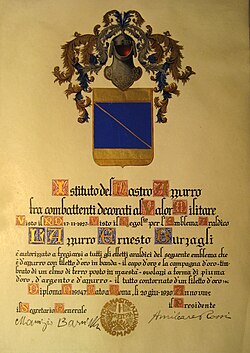 Istituto del Nastro Azzurro
fra combattenti decorati al Valor Militare
Visto il R.D. Visto il per l'Emblema Araldico
Azzurro Ernesto Burzagli
è autorizzato a fregiarsi a tutti gli effetti araldici del seguente emblema che
è d'azzurro con filetto d'oro in banda - il capo d'oro e la campagna d'oro - tim-
brato di un elmo di ferro posto in maestà - svolazzi a forma di piuma
d'oro, d'argento e d'azzurro - il tutto contornato d'un filetto d'oro
Diploma Roma, li 20
Segretario Generale Il Presidente